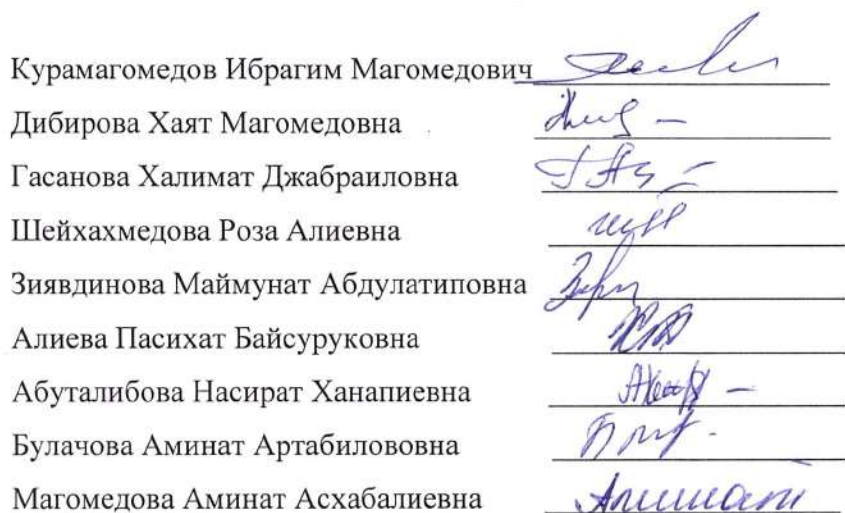 Курамагомедов Ибрагим Магомедович
Дибирова Хаят Магомедовна
Гасанова Халимат Джабраиловна
Шейхахмедова Роза Алиевна
Зиявдинова Маймунат Абдулатиповна
Алиева Пасихат Байсуруковна
Абуталибова Насират Ханапиевна
Булачова Аминат Артабилововна
Магомедова Аминат Асхабалиевна